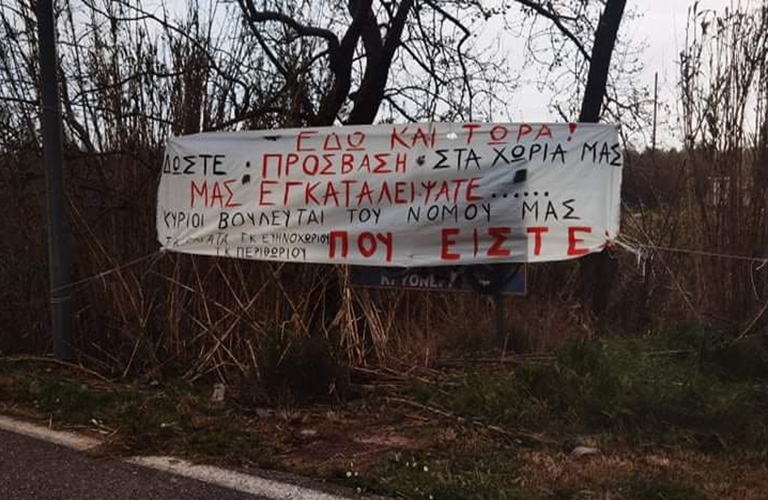 ΕΔΩ ΚΑΙ ΤΩΡΑ!
ΔΩΣΤΕ • ΠΡΟΣΒΑΣΗ • ΣΤΑ ΧΩΡΙΑ ΜΑΣ
ΜΑΣ ΕΓΚΑΤΑΛΕΙΨΑΤΕ......
ΚΥΡΙΟΙ ΒΟΥΛΕΥΤΑΙ ΤΟΥ ΝΟΜΟΥ ΜΑΣ
Τ.Κ ΕΥΗΝΟΧΩΡΙΟΥ
Τ.Κ ΠΕΡΙΘΩΡΙΟΥ
ΠΟΥ ΕΙΣΤΕ